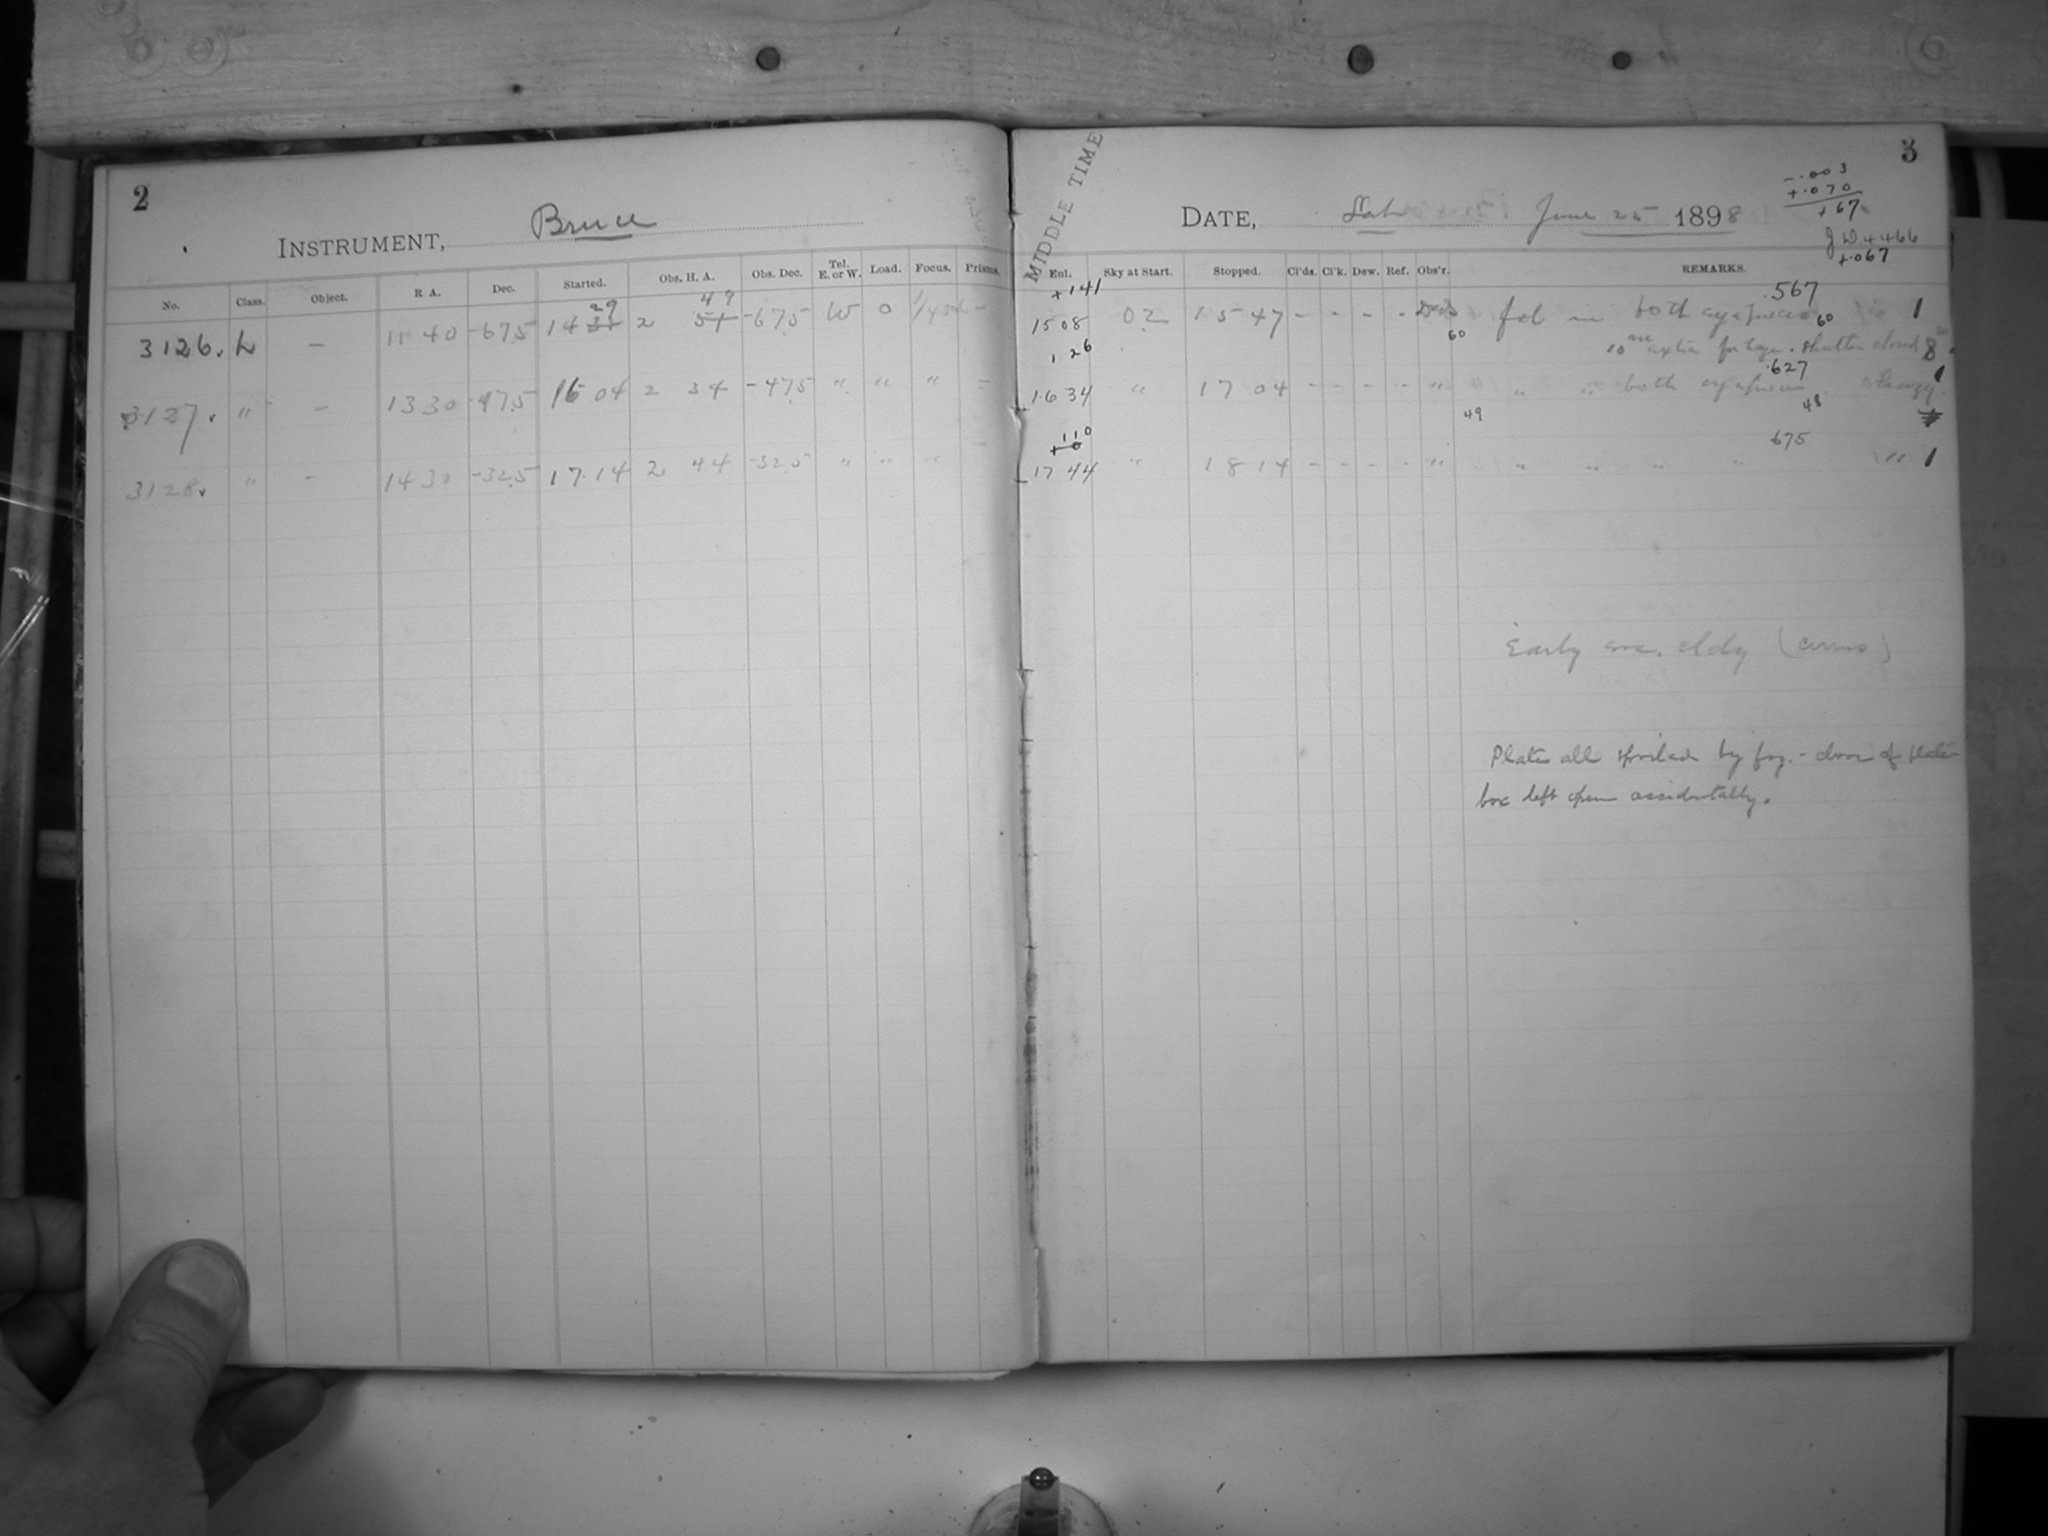 2
INSTRUMENT, Bruce
No. Class. Object. R A. Dec. Started. Obs. H. A. Obs. Dec. Tel. E. or W. Load. Focus. Prisms.
3126. L – 11 40 -67.5 14 31 29 2 51 49 -67.5 W 0
3127. " – 13 30 -47.5 16 04 2 34 -47.5 " " " –
3128. " – 14 30 -32.5 17.14 2 44 -32.5 " " "
3
MIDDLE TIME
-.003
+.070
+67
DATE, Sat June 25 1898
J.D. 4466
+.067
Eul. Sky at Start. Stopped. Cl'ds. Cl'k. Dew. Ref. Obs'r. REMARKS.
+141 .567
15 08 02 15 47 – – – – fol in both 60 1
1 26 60 10 sec extra for shutter closed 8
.627
16 34 " 17 04 – – – – " " " both hazy 1
49 48
+110 .675
17 44 " 18 14 – – – – " " " " " " 1
Early eve. cldy (cirrus)
Plates all spoiled by fog. – door of plate
box left open accidentally.